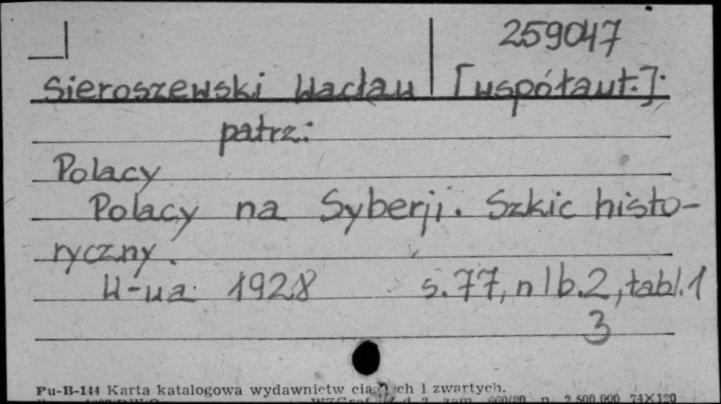 259047
Sieroszewski Wacław [współaut.]:
patrz:
Polacy
Polacy na Syberji. Szkic histo-
ryczny.
W-wa 1928 s. 77, nlb. 2, tabl. 1
3
Pu-B-144 Karta katalogowa wydawnictw ciągłych i zwartych.
zam. 660/80 n. 2.500.000 74X120